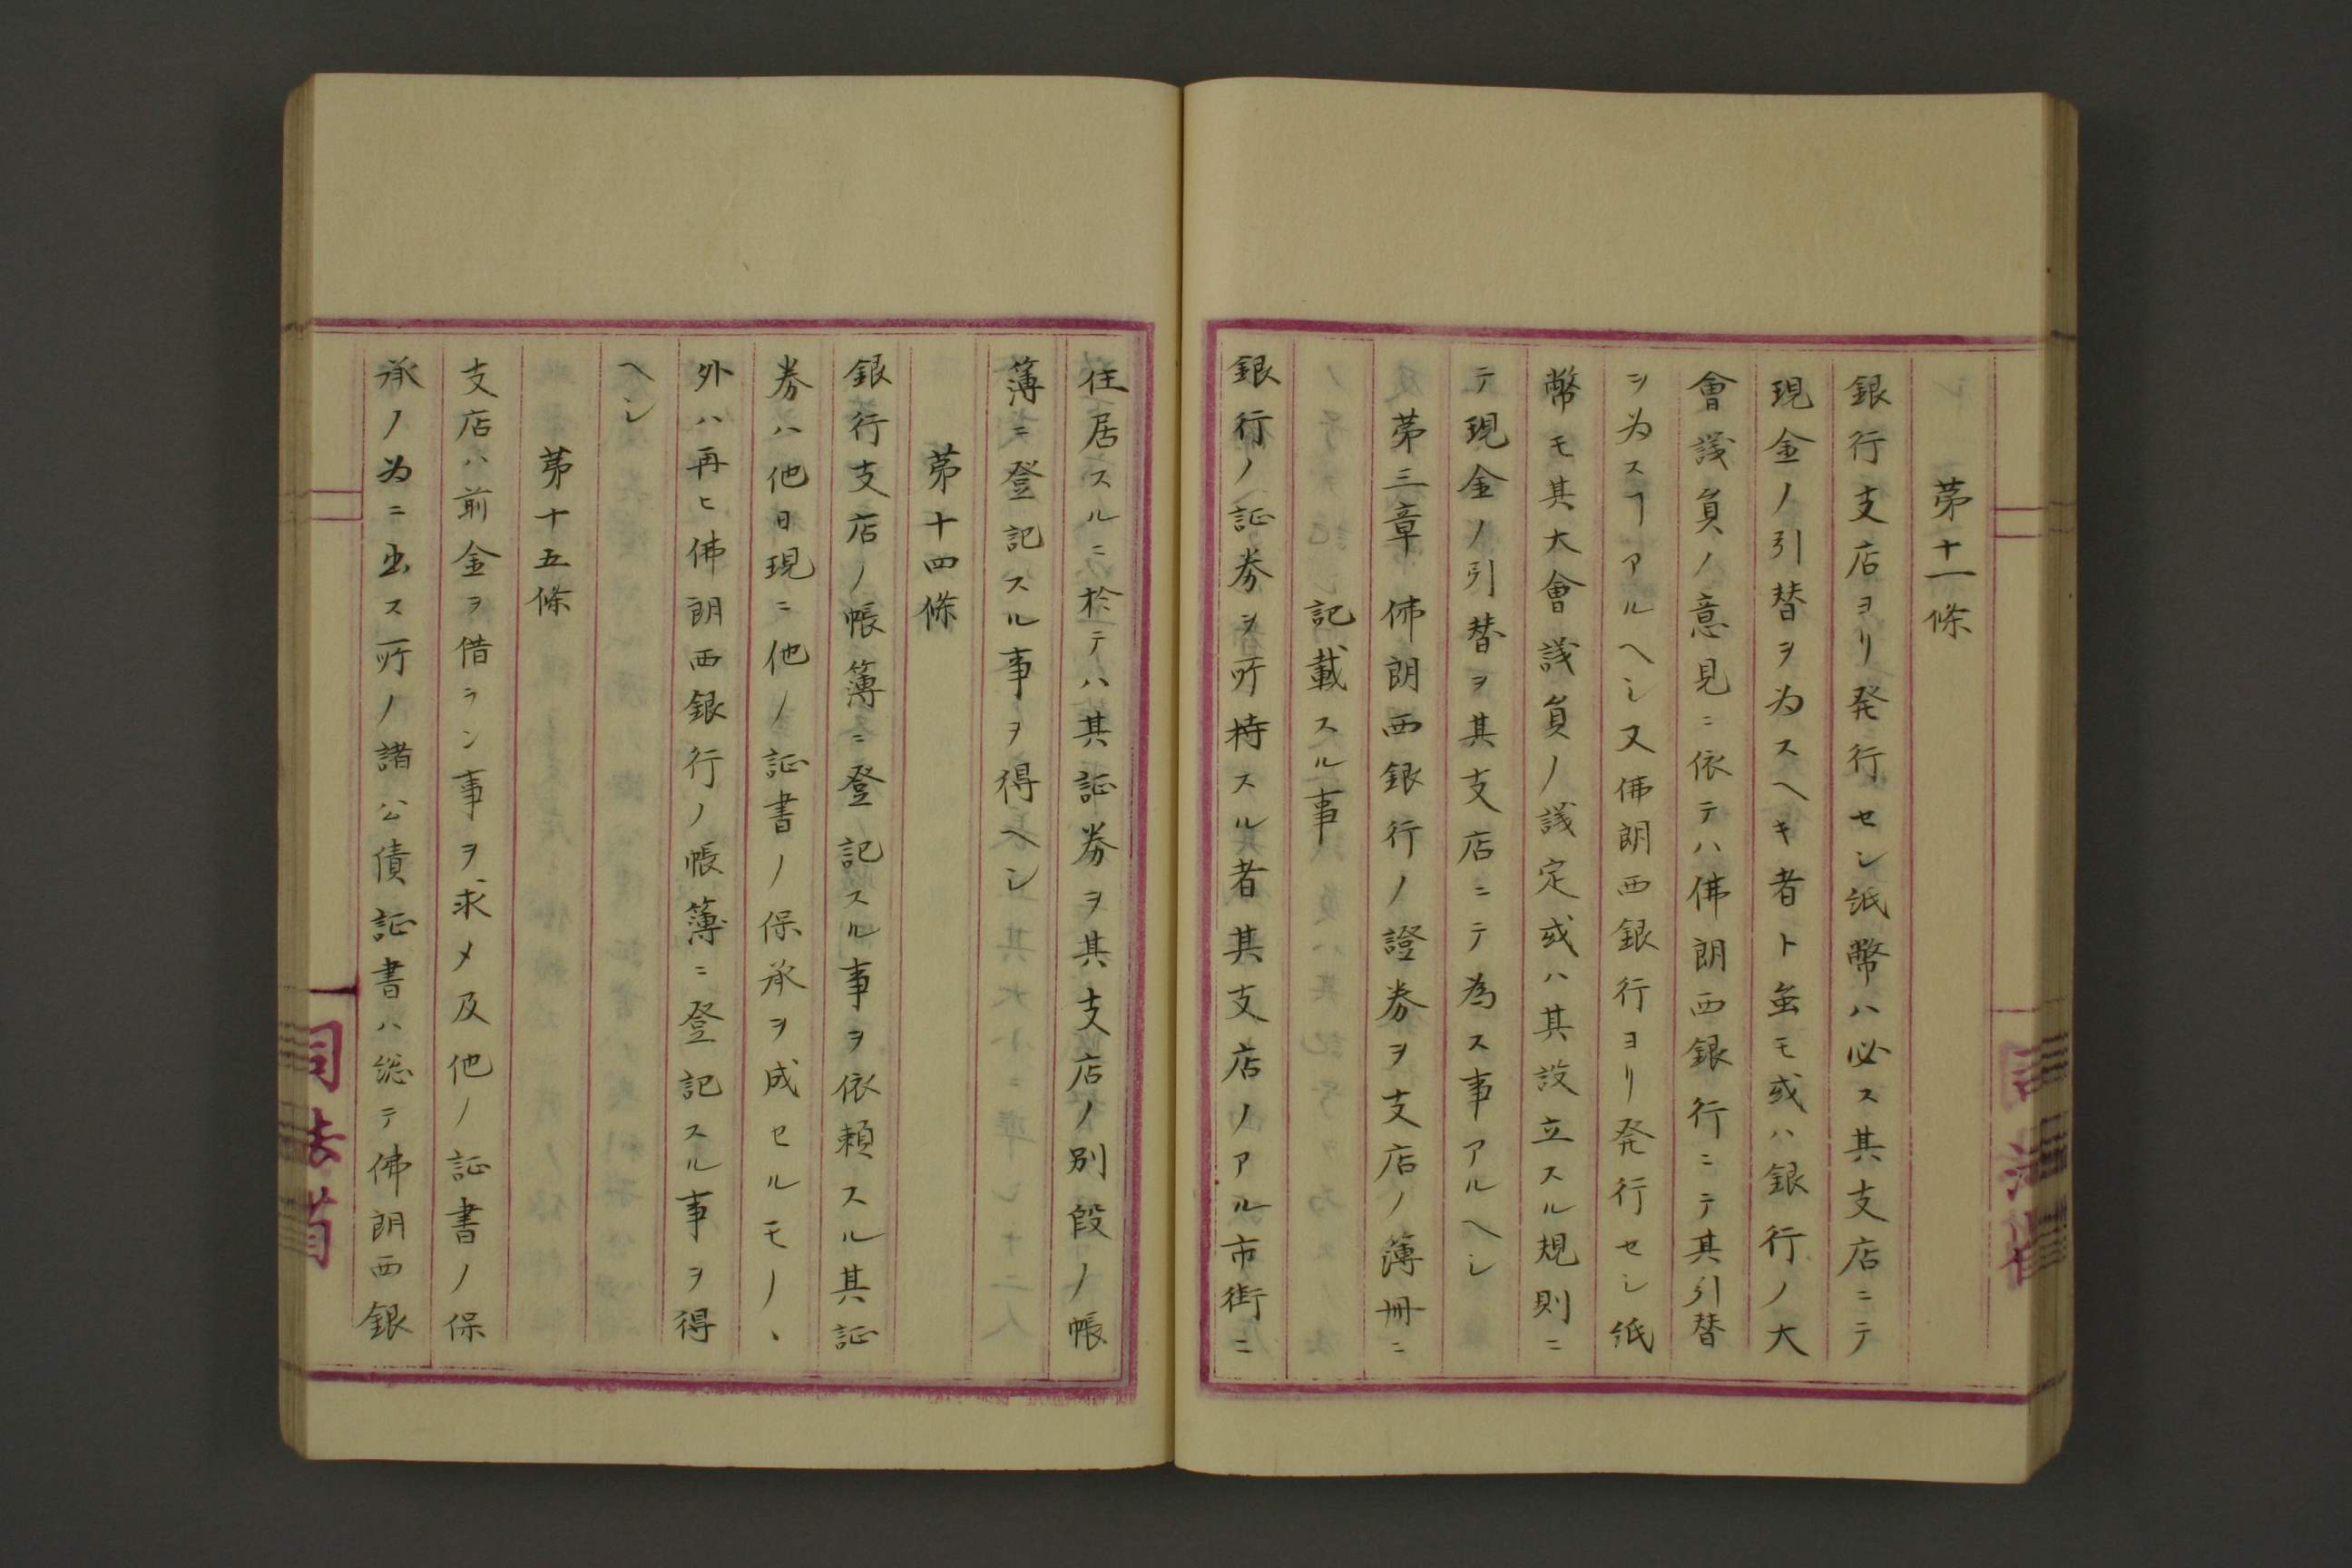 第十一條
銀行支店ヨリ発行セシ紙幣ハ必ス其支店ニテ
現金ノ引替ヲ為スヘキ者ト虽モ或ハ銀行ノ大
會議負ノ意見ニ依テハ佛朗西銀行ニテ其引替
ヲ為スヿアルヘシ又佛朗西銀行ヨリ発行セシ紙
幣モ其大會議負ノ議定或ハ其設立スル規則ニ
テ現金ノ引替ヲ其支店ニテ為ス事アルヘシ
第三章 佛朗西銀行ノ證券ヲ支店ノ簿冊ニ
記載スル事
銀行ノ証券ヲ所持スル者其支店ノアル市街ニ
住居スルニ於テハ其証券ヲ其支店ノ別段ノ帳
簿ニ登記スル事ヲ得ヘシ
第十四條
銀行支店ノ帳簿ニ登記スル事ヲ依頼スル其証
券ハ他日現ニ他ノ証書ノ保承ヲ成セルモノヽ
外ハ再ヒ佛朗西銀行ノ帳簿ニ登記スル事ヲ得
ヘシ
第十五條
支店ハ前金ヲ借ラン事ヲ求メ及他ノ証書ノ保
承ノ為ニ出ス所ノ諸公債証書ハ総テ佛朗西銀
司法省